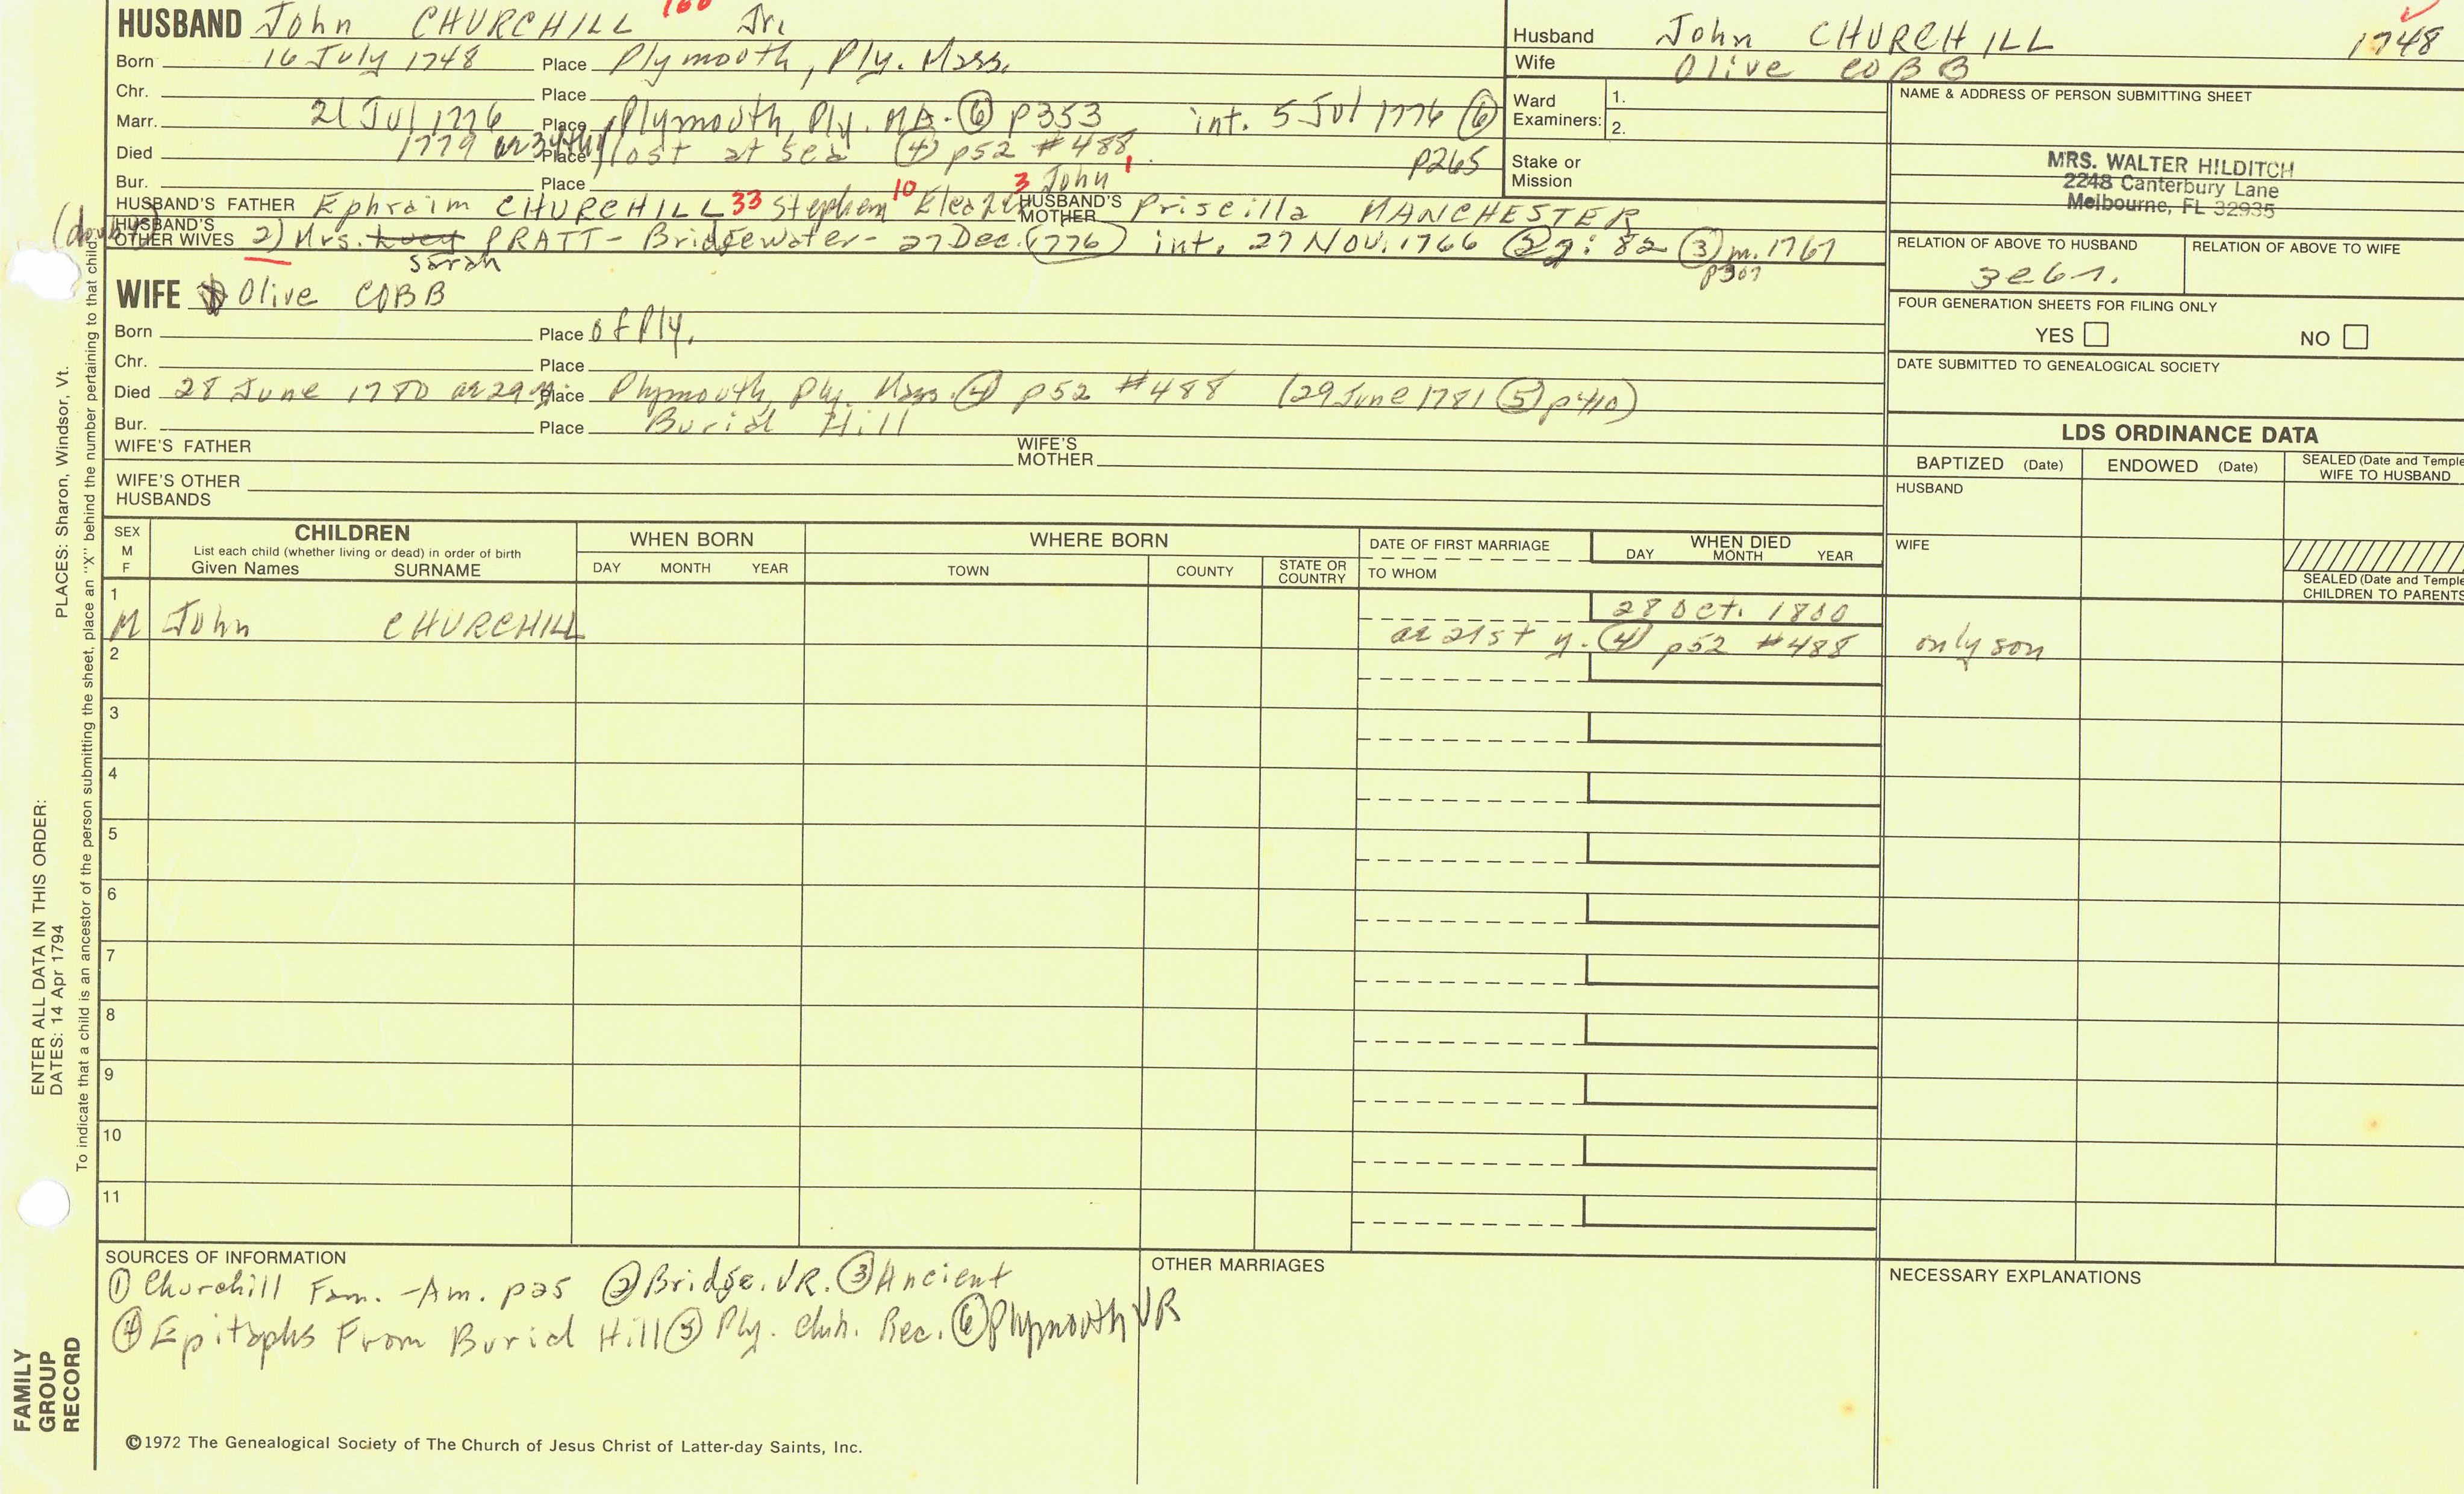 HUSBAND John CHURCHILL 160 Jr.
Born 16 July 1748 Place Plymouth, Ply. Mass.
Chr. Place
Marr. 21 Jul 1776 Place Plymouth, Ply. MA. ⑥ p353 int. 5 Jul 1776 ⑥ p265
Died 1779 Place lost at sea ④ p52 #488
Bur. Place
HUSBAND'S FATHER Ephraim CHURCHILL 33 Stephen 10 3 John 1 HUSBAND'S MOTHER Priscilla MANCHESTER
HUSBAND'S OTHER WIVES 2) Mrs. Lucy Sarah PRATT - Bridgewater - 27 Dec. (1776) int. 27 Nov. 1766 ② 2: 82 ③ m. 1767 p307
WIFE Olive COBB
Born Place of Ply.
Chr. Place
Died 28 June 1780 Place Plymouth, Ply. Mass. ④ p52 #488 (29 June 1781 ⑤ p410)
Bur. Place Burial Hill
WIFE'S FATHER WIFE'S MOTHER
WIFE'S OTHER HUSBANDS
Husband John CHURCHILL 1748
Wife Olive COBB
Ward Examiners: 1. 2.
Stake or Mission
NAME & ADDRESS OF PERSON SUBMITTING SHEET
MRS. WALTER HILDITCH
2248 Canterbury Lane
Melbourne, FL 32935
RELATION OF ABOVE TO HUSBAND RELATION OF ABOVE TO WIFE
FOUR GENERATION SHEETS FOR FILING ONLY
YES NO
DATE SUBMITTED TO GENEALOGICAL SOCIETY
LDS ORDINANCE DATA
BAPTIZED (Date) ENDOWED (Date) SEALED (Date and Temple WIFE TO HUSBAND
HUSBAND
WIFE
SEALED (Date and Temple
CHILDREN TO PARENTS
SEX M F
CHILDREN
List each child (whether living or dead) in order of birth
Given Names SURNAME
WHEN BORN
DAY MONTH YEAR
WHERE BORN
TOWN COUNTY STATE OR COUNTRY
DATE OF FIRST MARRIAGE
TO WHOM
WHEN DIED
DAY MONTH YEAR
1
M John CHURCHILL 28 Oct. 1800
ae 21st y. ④ p52 #488 only son
2
3
4
5
6
7
8
9
10
11
SOURCES OF INFORMATION
① Churchill Fam. -Am. p25 ② Bridge. VR. ③ Ancient
④ Epitaphs From Burial Hill ⑤ Ply. chh. Rec. ⑥ Plymouth VR
OTHER MARRIAGES
NECESSARY EXPLANATIONS
©1972 The Genealogical Society of The Church of Jesus Christ of Latter-day Saints, Inc.
FAMILY
GROUP
RECORD
ENTER ALL DATA IN THIS ORDER:
DATES: 14 Apr 1794 PLACES: Sharon, Windsor, Vt.
To indicate that a child is an ancestor of the person submitting the sheet, place an "X" behind the number pertaining to that child.